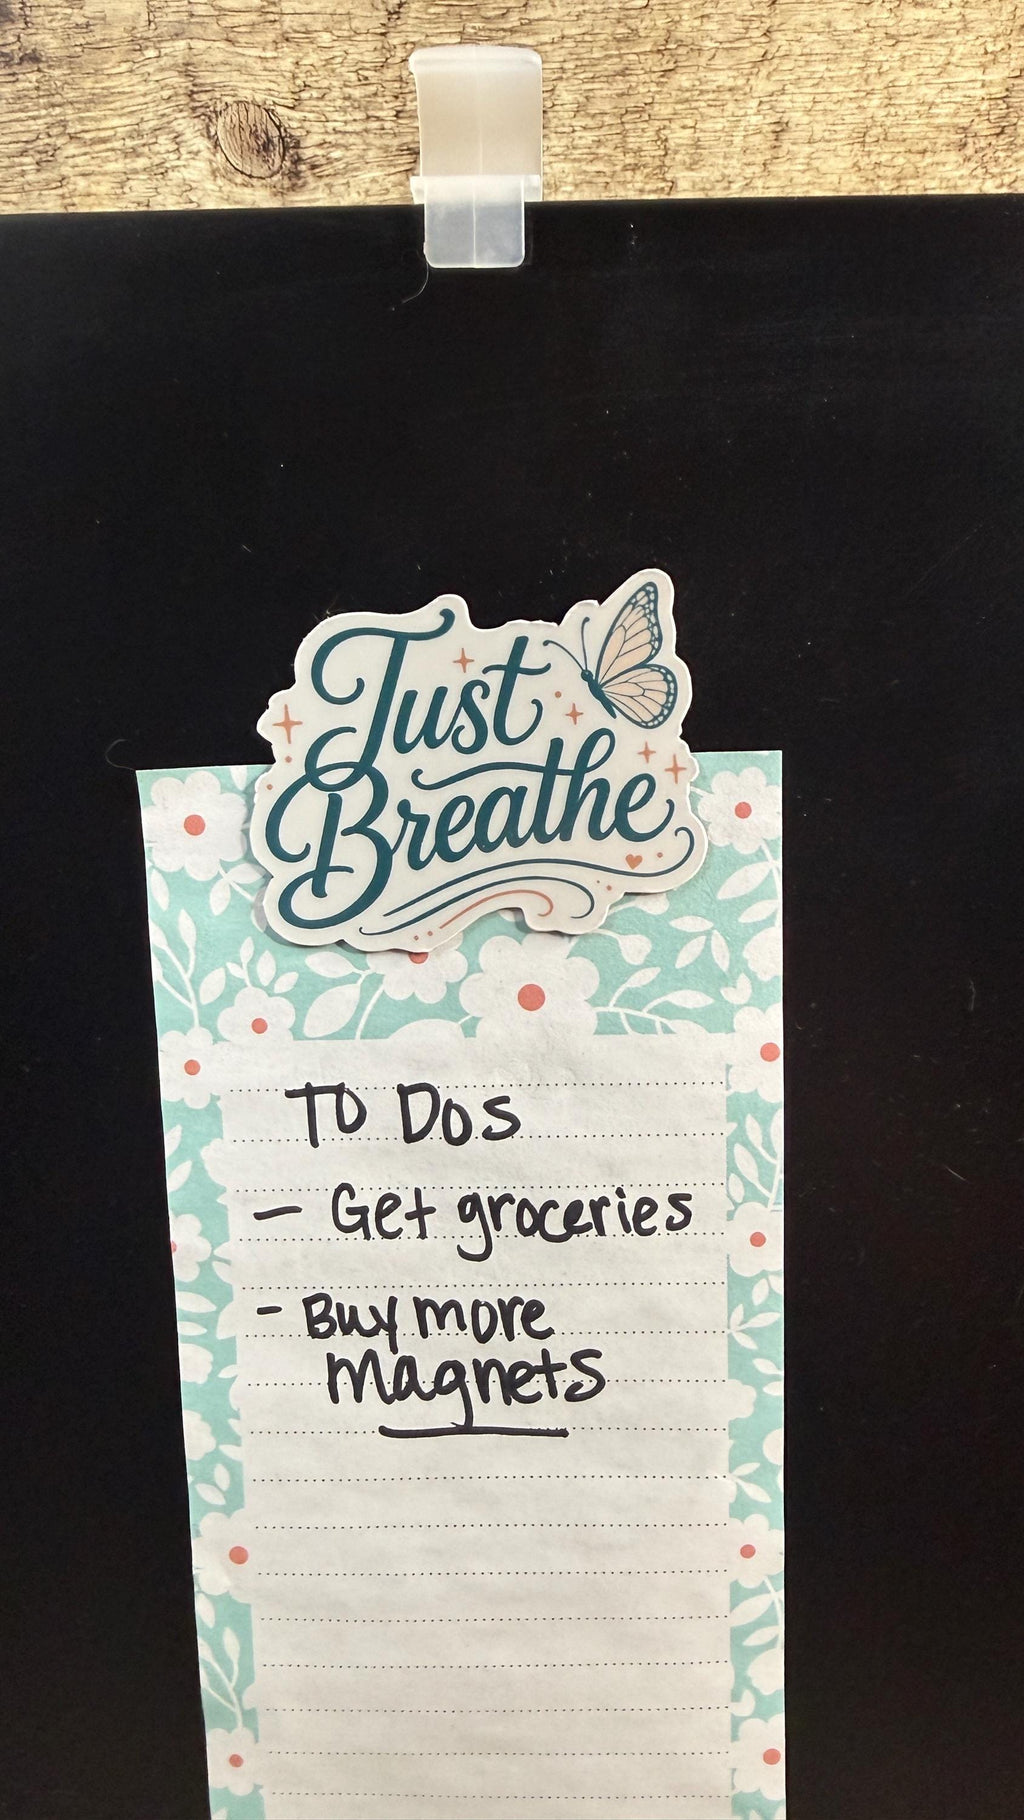 Just
Breathe
TO DOS
- Get groceries
- Buy more
magnets